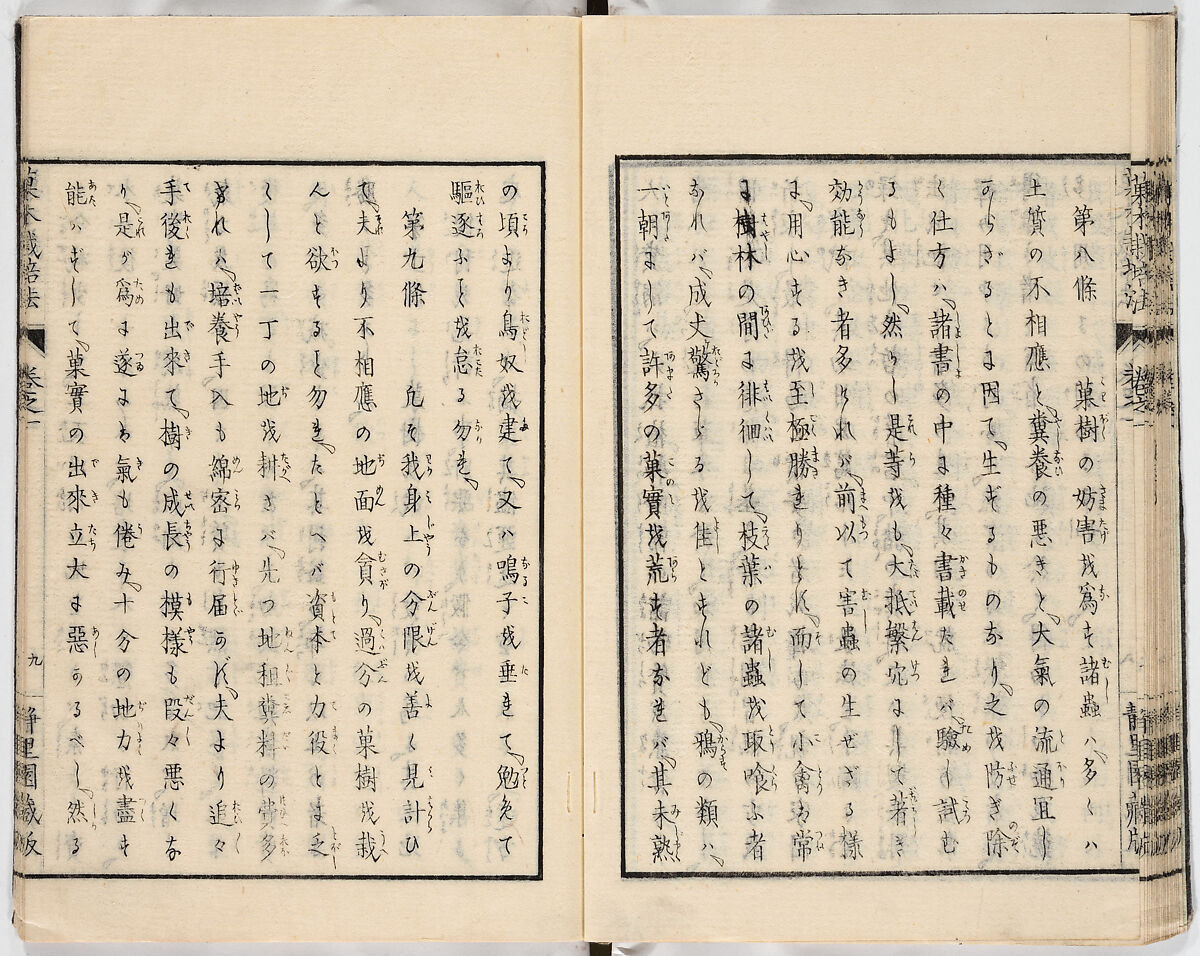 菓木栽培法 卷之一 靜里園藏版
第八條 菓樹の妨害を爲す諸蟲ハ、多くハ
土質の不相應と、糞養の悪きと、大氣の流通宜し
からざるとに因て、生ずるものなり、之を防ぎ除
く仕方ハ、諸書の中に種々書載たれバ、驗し試む
るもよし、然し是等をも、大抵繁冗にして著き
効能なき者多けれバ、前以て害蟲の生ぜざる樣
に、用心するを至極勝れりとす、而して小禽ハ常
に樹林の間に徘徊して、枝葉の諸蟲を取喰ふ者
なれバ、成丈驚さゞるを佳とすれども、鴉の類ハ、
一朝にして許多の菓實を荒す者なれバ、其未熟
の頃より鳥奴を建て、又ハ鳴子を垂れて、勉めて
驅逐ふを怠る勿れ、
第九條 凡そ我身上の分限を善く見計ひ
て、夫より不相應の地面を貪り、過分の菓樹を栽
んと欲すること勿れ、たとへバ資本と力役とに乏
くして一丁の地を耕さバ、先つ地租糞料の費多
けれバ、培養手入も綿密に行届かず、夫より追々
手後れも出來て、樹の成長の模樣も段々悪くな
り、是が爲に遂にハ氣も倦み、十分の地力を盡す
能ハずして、菓實の出來立大に惡かるべし、然る
菓木栽培法 卷之一 九 靜里園藏版